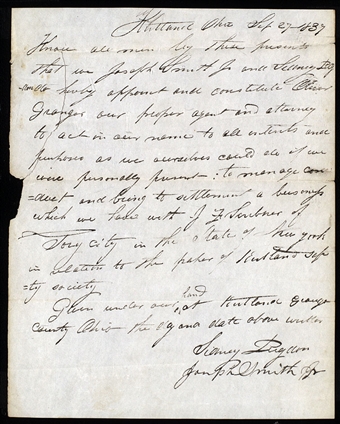 Kirtland Ohio Sep 27 1837
Know all men by these presents
that we Joseph Smith Jr and Sidney Rig
=don do herby appoint and constitute Oliver
Granger our proper agent and attorney
to act in our name to all intents and
purposes as we ourselves could do if we
were personally present: to manage con
=duct and bring to settlement a buisness
which we have with J F Scribner of
Troy city in the state of New york
in relation to the paper of Kirtland safe
=ty society
Given under our hand at Kirtland Geauga
county Ohio the day and date above written
Sidney Rigdon
Joseph Smith Jr